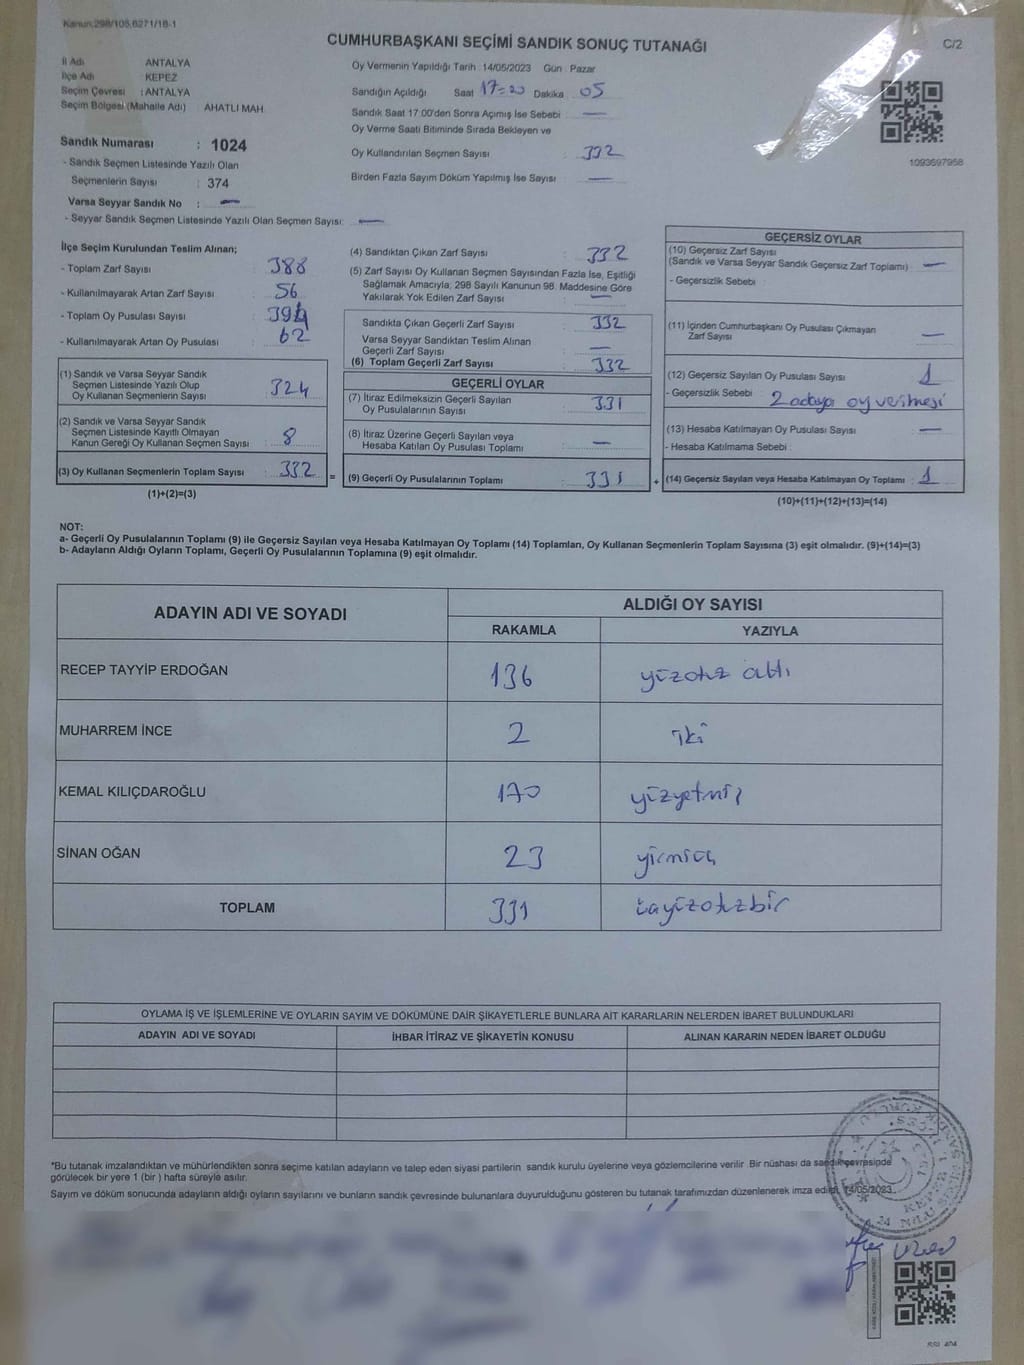 Kanun:298/105,6271/18-1
CUMHURBAŞKANI SEÇİMİ SANDIK SONUÇ TUTANAĞI
C/2
İl Adı ANTALYA
İlçe Adı KEPEZ
Seçim Çevresi : ANTALYA
Seçim Bölgesi (Mahalle Adı) AHATLI MAH.
Sandık Numarası : 1024
- Sandık Seçmen Listesinde Yazılı Olan
Seçmenlerin Sayısı : 374
Varsa Seyyar Sandık No : —
- Seyyar Sandık Seçmen Listesinde Yazılı Olan Seçmen Sayısı: —
Oy Vermenin Yapıldığı Tarih : 14/05/2023 Gün : Pazar
Sandığın Açıldığı Saat 17=20 Dakika 05
Sandık Saat 17.00'den Sonra Açımış İse Sebebi : —
Oy Verme Saati Bitiminde Sırada Bekleyen ve
Oy Kullandırılan Seçmen Sayısı : 332
Birden Fazla Sayım Döküm Yapılmış İse Sayısı : —
1093697968
İlçe Seçim Kurulundan Teslim Alınan;
- Toplam Zarf Sayısı : 388
- Kullanılmayarak Artan Zarf Sayısı : 56
- Toplam Oy Pusulası Sayısı : 394
- Kullanılmayarak Artan Oy Pusulası : 62
(1) Sandık ve Varsa Seyyar Sandık
Seçmen Listesinde Yazılı Olup
Oy Kullanan Seçmenlerin Sayısı : 324
(2) Sandık ve Varsa Seyyar Sandık
Seçmen Listesinde Kayıtlı Olmayan
Kanun Gereği Oy Kullanan Seçmen Sayısı : 8
(3) Oy Kullanan Seçmenlerin Toplam Sayısı : 332
(1)+(2)=(3)
(4) Sandıktan Çıkan Zarf Sayısı : 332
(5) Zarf Sayısı Oy Kullanan Seçmen Sayısından Fazla İse, Eşitliği
Sağlamak Amacıyla, 298 Sayılı Kanunun 98. Maddesine Göre
Yakılarak Yok Edilen Zarf Sayısı : —
Sandıkta Çıkan Geçerli Zarf Sayısı : 332
Varsa Seyyar Sandıktan Teslim Alınan
Geçerli Zarf Sayısı : —
(6) Toplam Geçerli Zarf Sayısı : 332
GEÇERLİ OYLAR
(7) İtiraz Edilmeksizin Geçerli Sayılan
Oy Pusulalarının Sayısı : 331
(8) İtiraz Üzerine Geçerli Sayılan veya
Hesaba Katılan Oy Pusulası Toplamı : —
= (9) Geçerli Oy Pusulalarının Toplamı : 331 +
GEÇERSİZ OYLAR
(10) Geçersiz Zarf Sayısı
(Sandık ve Varsa Seyyar Sandık Geçersiz Zarf Toplamı) : —
- Geçersizlik Sebebi :
(11) İçinden Cumhurbaşkanı Oy Pusulası Çıkmayan
Zarf Sayısı : —
(12) Geçersiz Sayılan Oy Pusulası Sayısı : 1
- Geçersizlik Sebebi : 2 adaya oy verilmesi
(13) Hesaba Katılmayan Oy Pusulası Sayısı : —
- Hesaba Katılmama Sebebi :
(14) Geçersiz Sayılan veya Hesaba Katılmayan Oy Toplamı : 1
(10)+(11)+(12)+(13)=(14)
NOT:
a- Geçerli Oy Pusulalarının Toplamı (9) ile Geçersiz Sayılan veya Hesaba Katılmayan Oy Toplamı (14) Toplamları, Oy Kullanan Seçmenlerin Toplam Sayısına (3) eşit olmalıdır. (9)+(14)=(3)
b- Adayların Aldığı Oyların Toplamı, Geçerli Oy Pusulalarının Toplamına (9) eşit olmalıdır.
ADAYIN ADI VE SOYADI ALDIĞI OY SAYISI
RAKAMLA YAZIYLA
RECEP TAYYİP ERDOĞAN 136 yüzotuz altı
MUHARREM İNCE 2 iki
KEMAL KILIÇDAROĞLU 170 yüzyetmiş
SİNAN OĞAN 23 yirmiüç
TOPLAM 331 üçyüzotuzbir
OYLAMA İŞ VE İŞLEMLERİNE VE OYLARIN SAYIM VE DÖKÜMÜNE DAİR ŞİKAYETLERLE BUNLARA AİT KARARLARIN NELERDEN İBARET BULUNDUKLARI
ADAYIN ADI VE SOYADI İHBAR İTİRAZ VE ŞİKAYETİN KONUSU ALINAN KARARIN NEDEN İBARET OLDUĞU
*Bu tutanak imzalandıktan ve mühürlendikten sonra seçime katılan adayların ve talep eden siyasi partilerin sandık kurulu üyelerine veya gözlemcilerine verilir. Bir nüshası da sandık çevresinde
görülecek bir yere 1 (bir ) hafta süreyle asılır.
Sayım ve döküm sonucunda adayların aldığı oyların sayılarını ve bunların sandık çevresinde bulunanlara duyurulduğunu gösteren bu tutanak tarafımızdan düzenlenerek imza edildi. 14/05/2023